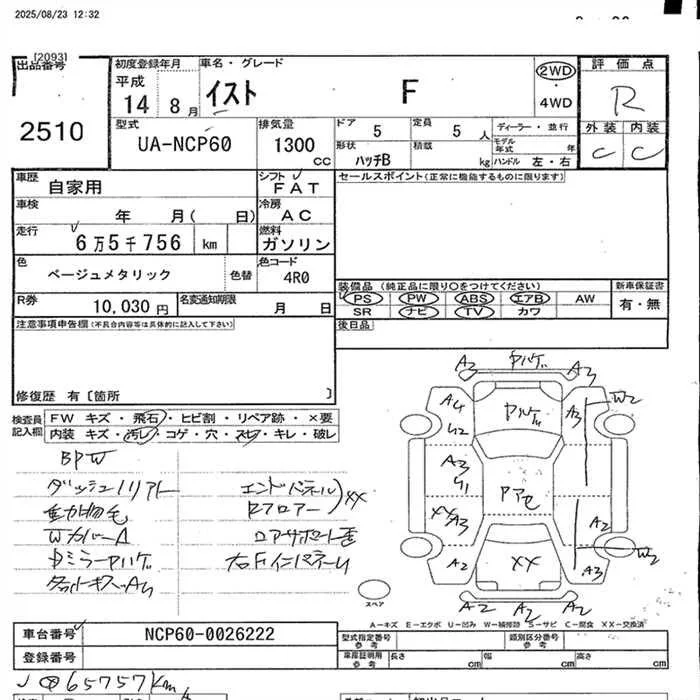 2025/08/23 12:32
[2093]
出品番号
2510
初度登録年月
平成
14 8月
車名・グレード
イスト F
2WD
4WD
評価点
R
外装 内装
C C
型式
UA-NCP60
排気量
1300
cc
ドア 5
定員 5 人
形状 ハッチB
積載 kg
ディーラー・並行
モデル年式 年
ハンドル 左・右
車歴 自家用
シフト FAT
セールスポイント(正常に機能するものに限ります)
車検 年 月( 日)
冷房 AC
走行 6万5千756 km
燃料 ガソリン
色 ベージュメタリック
色替
色コード 4R0
装備品 (純正品に限り○をつけてください)
PS PW ABS エアB AW
SR ナビ TV カワ
新車保証書
有・無
R券 10,030円
名変通知期限 月 日
後日品
注意事項申告欄(不具合内容等は具体的に記入して下さい)
修復歴 有〔箇所 〕
検査員記入欄
FW キズ・飛石・ヒビ割・リペア跡・×要
内装 キズ・汚レ・コゲ・穴・スレ・キレ・破レ
BPW
動物毛
エンドパネル
Rフロアー
XX
A2 A3
A4 A3 W2
U2
A3
U1
XX
A3 A2
W2
A2 XX A3
A2 A2 A2
スペア
A-キズ E-エクボ U-凹み W-補修跡 S-サビ C-腐食 XX-交換済
車台番号 NCP60-0026222
登録番号
型式指定番号 参考
類別区分番号 参考
車庫証明用 参考
長さ cm 幅 cm 高さ cm
65757km